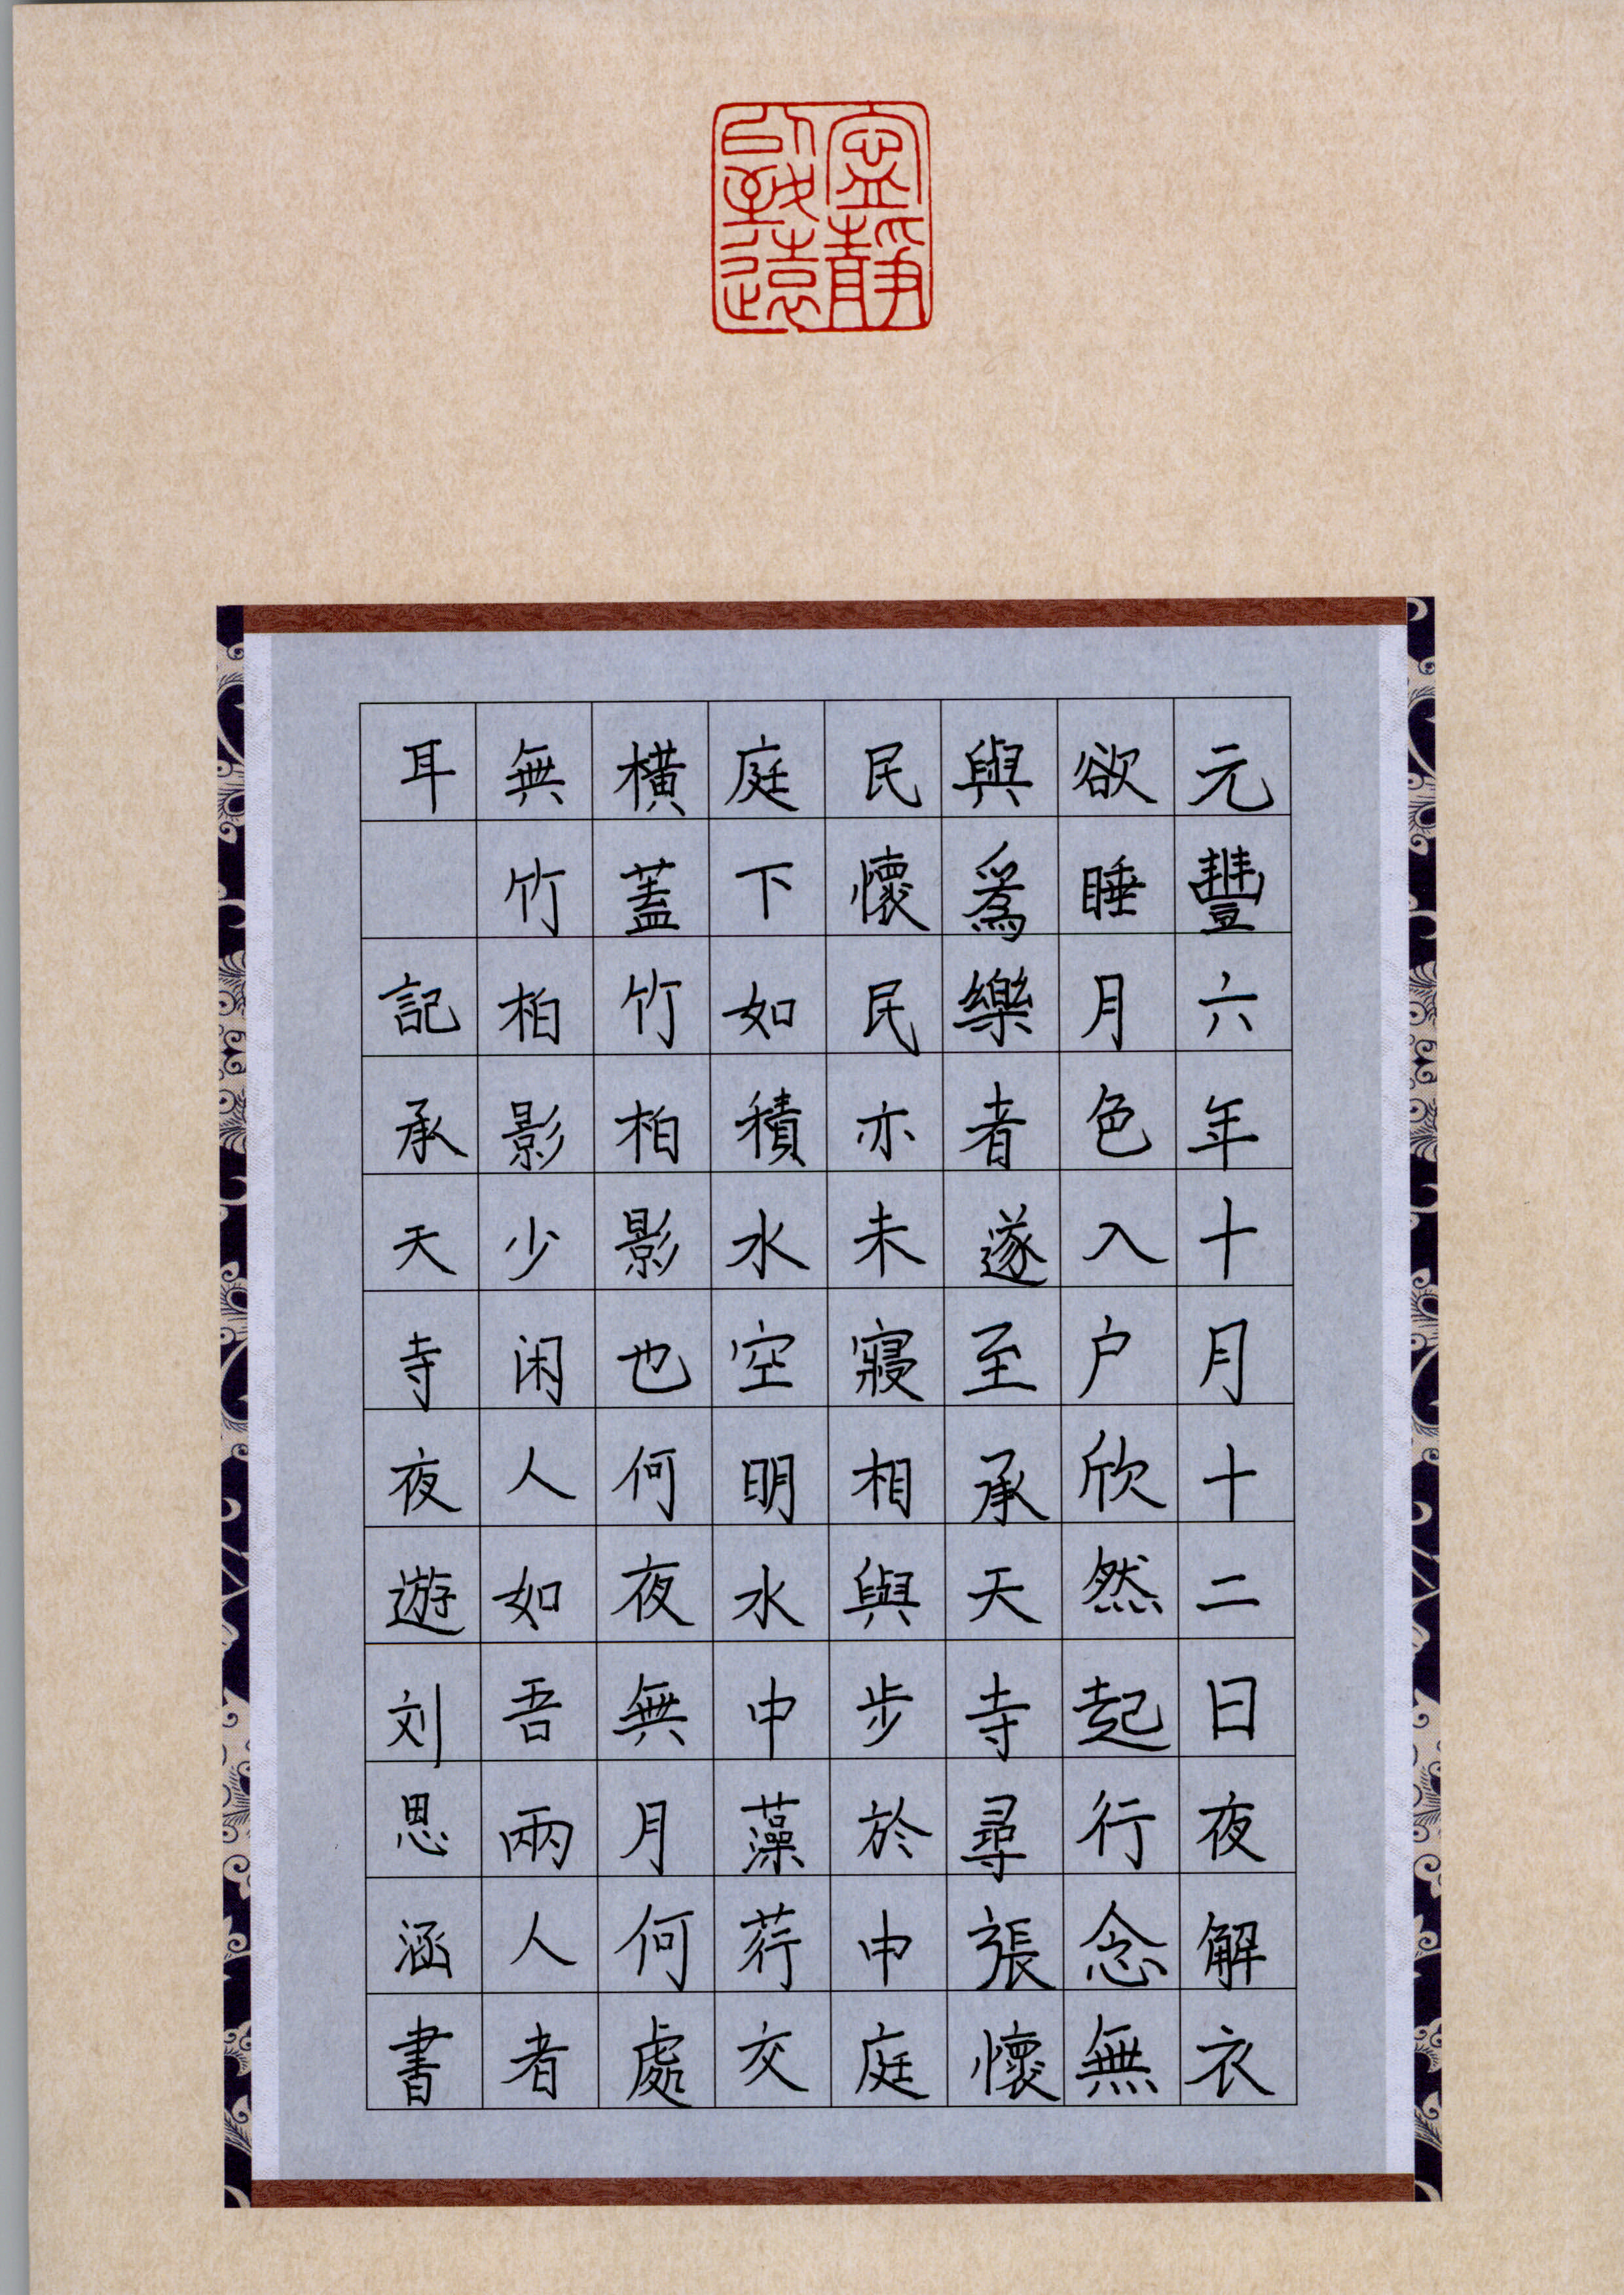 寧靜
以致遠
元豐六年十月十二日夜解衣
欲睡月色入户欣然起行念無
與爲樂者遂至承天寺尋張懷
民懷民亦未寢相與步於中庭
庭下如積水空明水中藻荇交
橫蓋竹柏影也何夜無月何處
無竹柏影少闲人如吾兩人者
耳 記承天寺夜遊刘思涵書